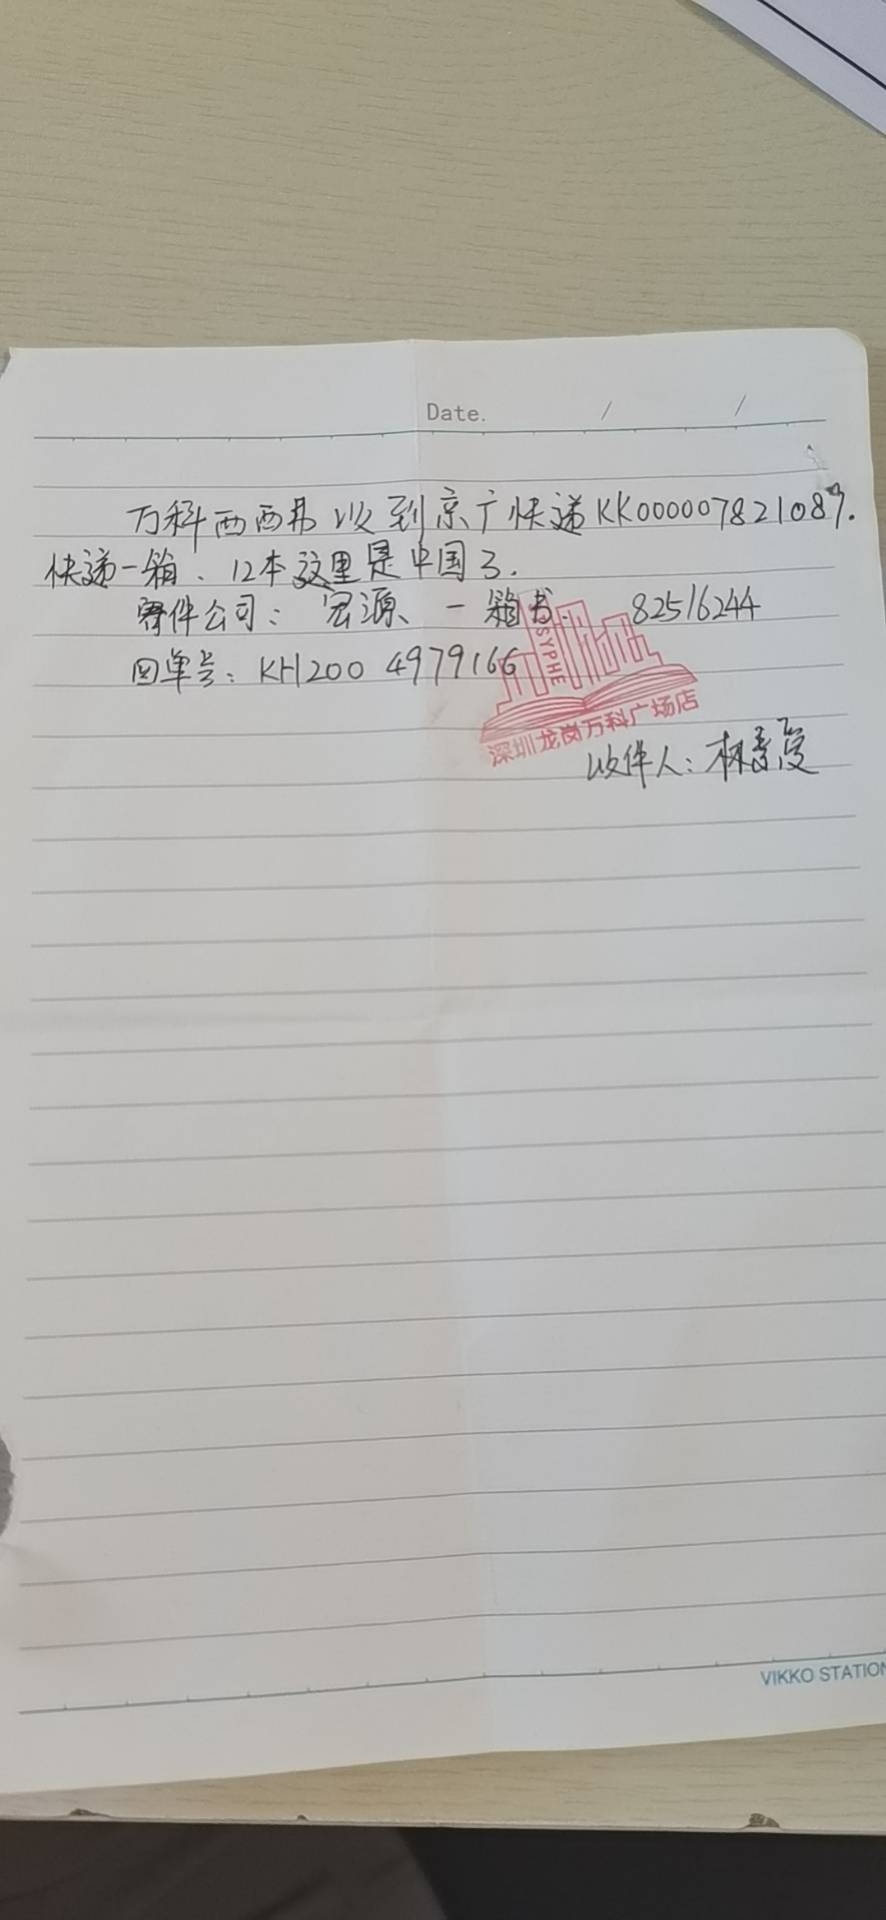 Date. / /
万科西西弗收到京广快递KK000007821089.
快递一箱、12本这里是中国3.
寄件公司：宏源、一箱书. 82516244
回单号：KH200 4979166
SYPHE
深圳龙岗万科广场店
收件人：林
VIKKO STATION